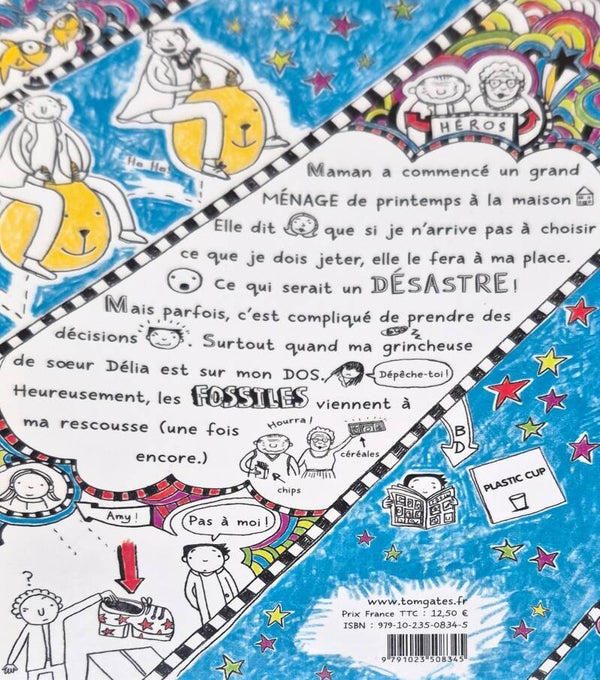 HÉROS
Ha Ha!
Maman a commencé un grand
MÉNAGE de printemps à la maison
Elle dit que si je n'arrive pas à choisir
ce que je dois jeter, elle le fera à ma place.
Ce qui serait un DÉSASTRE!
Mais parfois, c'est compliqué de prendre des
décisions. Surtout quand ma grincheuse
de sœur Délia est sur mon DOS.
Dépêche-toi!
Heureusement, les FOSSILES viennent à
ma rescousse (une fois
encore.)
Hourra!
céréales
chips
BD
PLASTIC CUP
Amy!
Pas à moi!
?
www.tomgates.fr
Prix France TTC : 12,50 €
ISBN : 979-10-235-0834-5
9 791023 508345